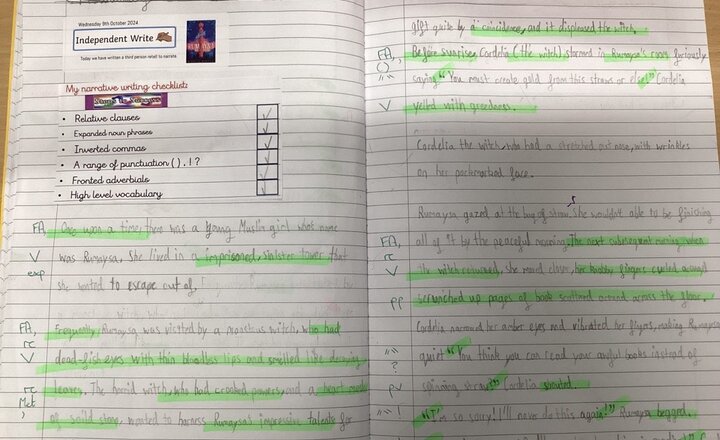 Wednesday 9th October 2024
Independent Write
Today we have written a third person retell to narrate
My narrative writing checklist:
Relative clauses
Expanded noun phrases
Inverted commas
A range of punctuation ( ) , ! ?
Fronted adverbials
High level vocabulary
FA, Once upon a time, there was a young Muslim girl who's name
V was Rumaysa. She lived in a imprisoned, sinister tower that
exp she wanted to escape out of.
FA, Frequently, Rumaysa was visited by a monstrous witch, who had
rc
V dead-fish eyes with thin bloodless lips and smelled like decaying
rc leaves. The horrid witch, who had crooked powers, and a heart
Met of solid stone, wanted to harness Rumaysa's impressive talents for
gift quite by a coincidence, and it displeased the witch.
FA, Before sunrise, Cordelia (the witch) stormed in Rumaysa's room furiously
( )
"" saying "You must create gold from this straw or else!" Cordelia
V yelled with greediness.
Cordelia the witch, who had a stretched out nose, with wrinkles
on her pockmarked face.
Rumaysa gazed at the bag of straw. She wouldn't able to be finishing
FA, all of it by the peaceful morning. The next subsequent evening when
rc
V the witch returned, she moved closer, her knobbly fingers curled around
pp scrunched up pages of book scattered around across the floor.
Cordelia narrowed her amber eyes and vibrated her fingers, making Rumaysa
"" quiet "You think you can read your awful books instead of
?
pv spinning straw?" Cordelia shouted.
"" ! "I'm so sorry! I'll never do this again!" Rumaysa begged.